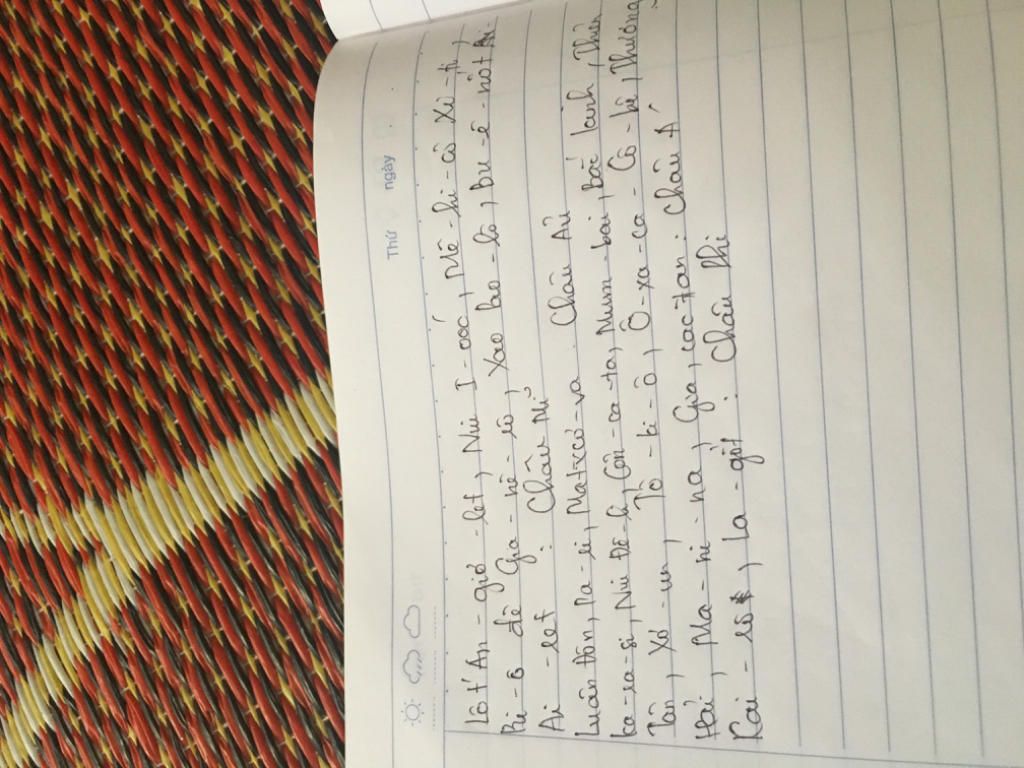 Thứ ngày
Lôt An-giơ-let, Niu I-ooc, Mê-hi-cô Xi-ti,
Ri-ô đê Gia-nê-rô, Xao Pao-lô, Bu-ê-nôt Ai
Ai-let : Châu Mĩ
Luân Đôn, Pa-ri, Matxcơ-va . Châu Âu
Ka-ra-si, Niu Đê-li, Côn-ca-ta, Mum-bai, Bắc Kinh, Thiên
Tân, Xơ-un, Tô-ki-ô, Ô-xa-ca-Cô-bê, Thượng
Hải, Ma-ni-na, Gia, cac-tan : Châu Á
Kai-rô, La-gôt : Châu Phi